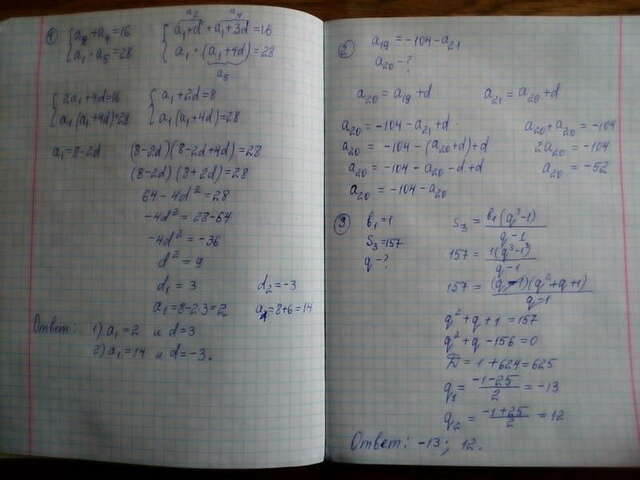 1) { a₂ + a₄ = 16   { a₁+d + a₁+3d = 16
{ a₁ · a₅ = 28   { a₁ · (a₁+4d) = 28
a₂   a₄
a₅
{ 2a₁ + 4d = 16   { a₁ + 2d = 8
{ a₁(a₁+4d) = 28   { a₁(a₁+4d) = 28
a₁ = 8-2d   (8-2d)(8-2d+4d) = 28
(8-2d)(8+2d) = 28
64 - 4d² = 28
-4d² = 28-64
-4d² = -36
d² = 9
d₁ = 3   d₂ = -3
a₁ = 8-2·3 = 2   a₁ = 8+6 = 14
Ответ: 1) a₁ = 2 и d = 3
2) a₁ = 14 и d = -3.
2) a₁₉ = -104 - a₂₁
a₂₀ - ?
a₂₀ = a₁₉ + d   a₂₁ = a₂₀ + d
a₂₀ = -104 - a₂₁ + d   a₂₀ + a₂₀ = -104
a₂₀ = -104 - (a₂₀+d) + d   2a₂₀ = -104
a₂₀ = -104 - a₂₀ - d + d   a₂₀ = -52
a₂₀ = -104 - a₂₀
3) b₁ = 1   S₃ = b₁(q³-1) / q-1
S₃ = 157
q - ?   157 = 1(q³-1) / q-1
157 = (q-1)(q²+q+1) / q-1
q² + q + 1 = 157
q² + q - 156 = 0
D = 1 + 624 = 625
q₁ = -1-25 / 2 = -13
q₂ = -1+25 / 2 = 12
Ответ: -13; 12.